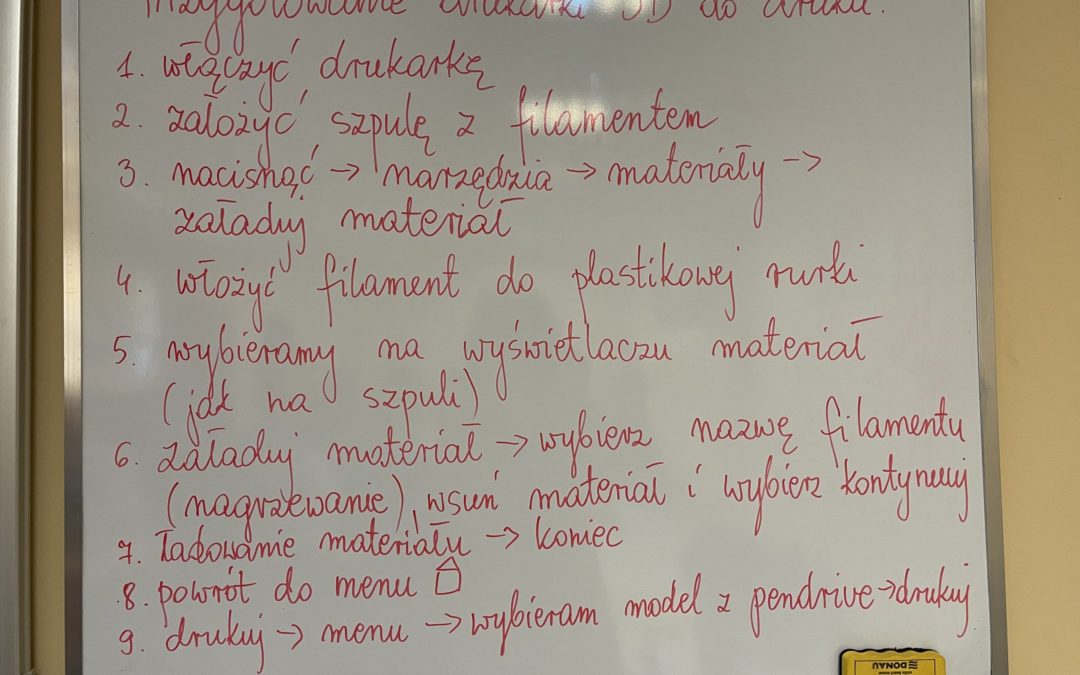 Przygotowanie drukarki 3D do druku.
1. włączyć drukarkę
2. założyć szpulę z filamentem
3. nacisnąć → narzędzia → materiały →
załaduj materiał
4. włożyć filament do plastikowej rurki
5. wybieramy na wyświetlaczu materiał
(jak na szpuli)
6. załaduj materiał → wybierz nazwę filamentu
(nagrzewanie), wsuń materiał i wybierz kontynuuj
7. ładowanie materiału → koniec
8. powrót do menu
9. drukuj → menu → wybieram model z pendrive → drukuj
DONAU